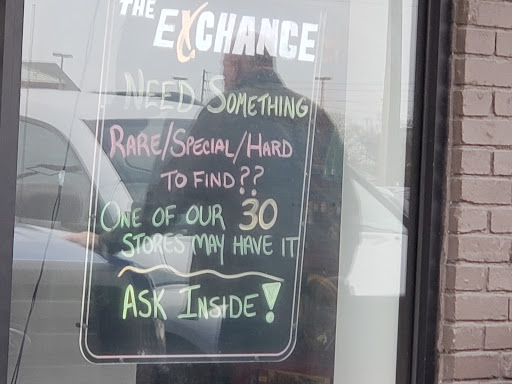 THE
EXCHANGE
NEED SOMETHING
RARE/SPECIAL/HARD
TO FIND??
ONE OF OUR 30
STORES MAY HAVE IT
ASK INSIDE!